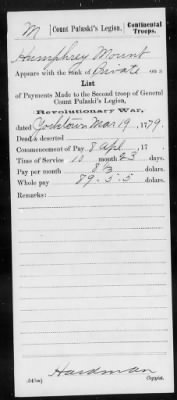 M | Count Pulaski's Legion. | Continental Troops.
Humphrey Mount
Appears with the rank of Private on a
List
of Payments Made to the Second troop of General
Count Pulaski's Legion,
Revolutionary War,
dated Yorktown Mar 19, 1779.
Dead & deserted
Commencement of Pay 8 Apl, 17
Time of Service 10 month 23 days.
Pay per month 8 1/3 dollars.
Whole pay 89.5.5 dollars.
Remarks:
Hardman
Copyist.